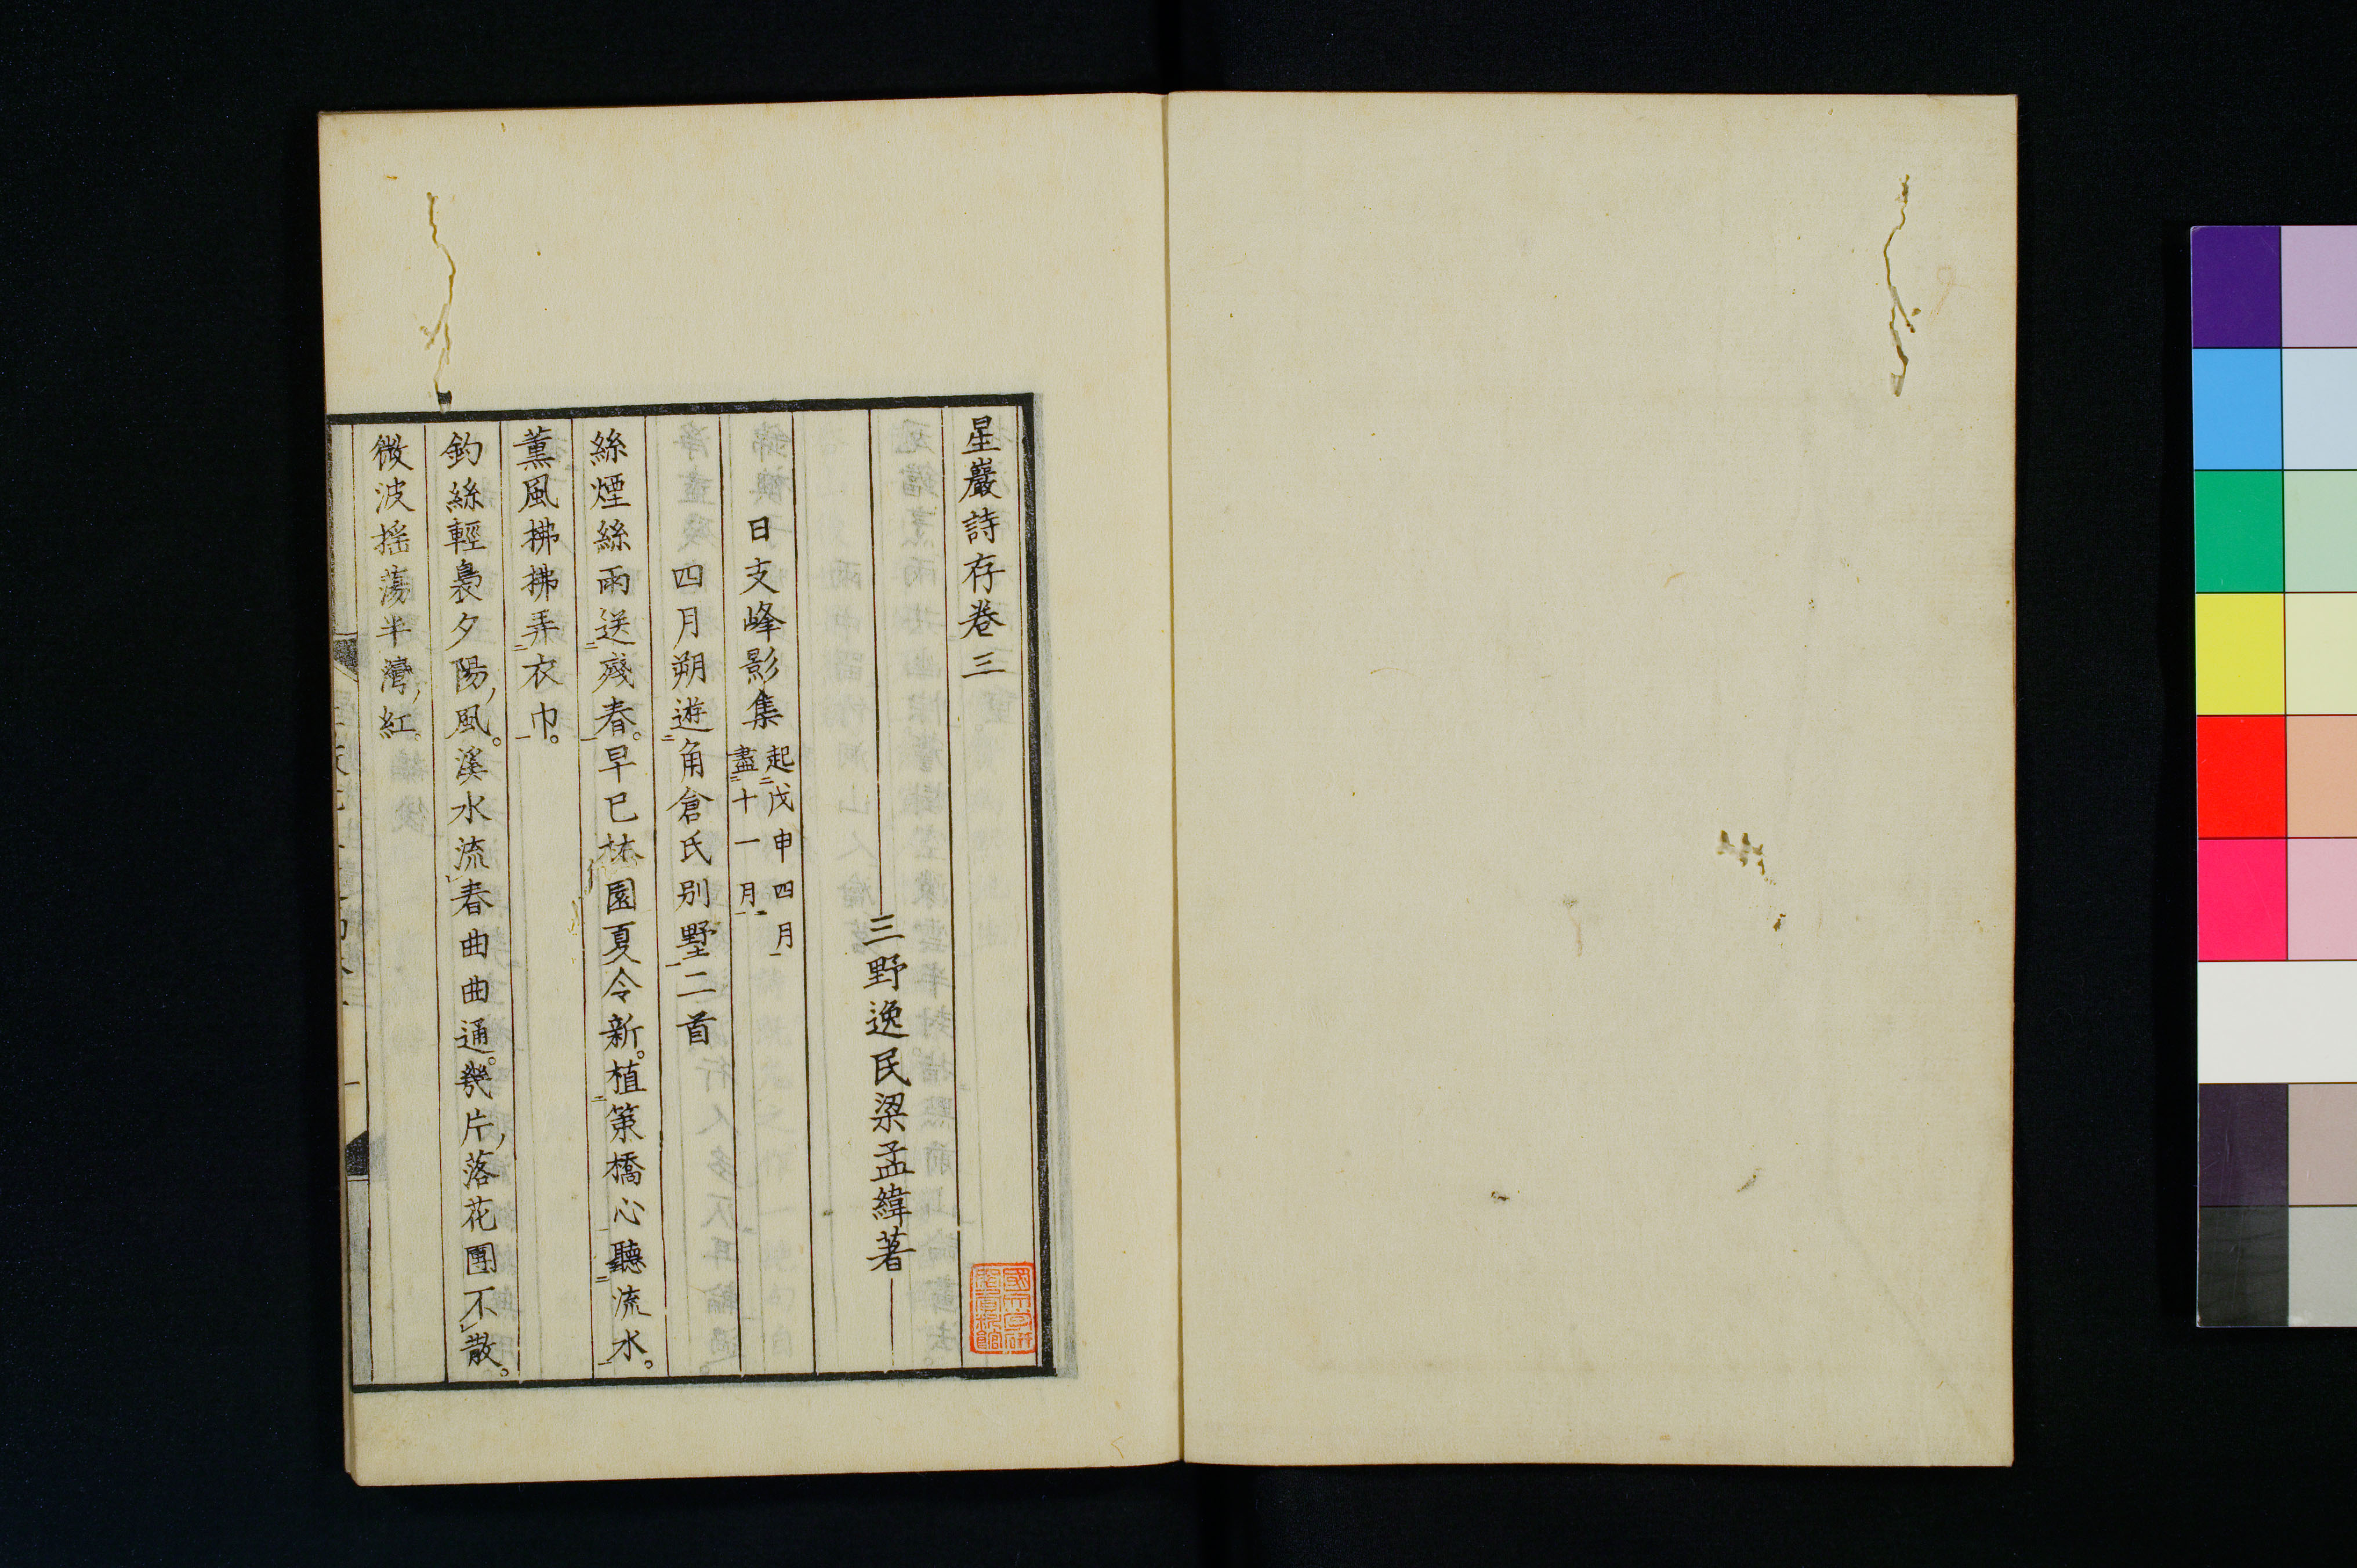 星巖詩存卷三
三野逸民梁孟緯著
日支峰影集 起戊申四月 盡十一月
四月朔遊角倉氏別墅二首
絲煙絲雨送殘春。早已林園夏令新。植策橋心聽流水。
薰風拂拂弄衣巾。
釣絲輕裊夕陽風。溪水流春曲曲通。幾片落花團不散。
微波搖蕩半灣紅。